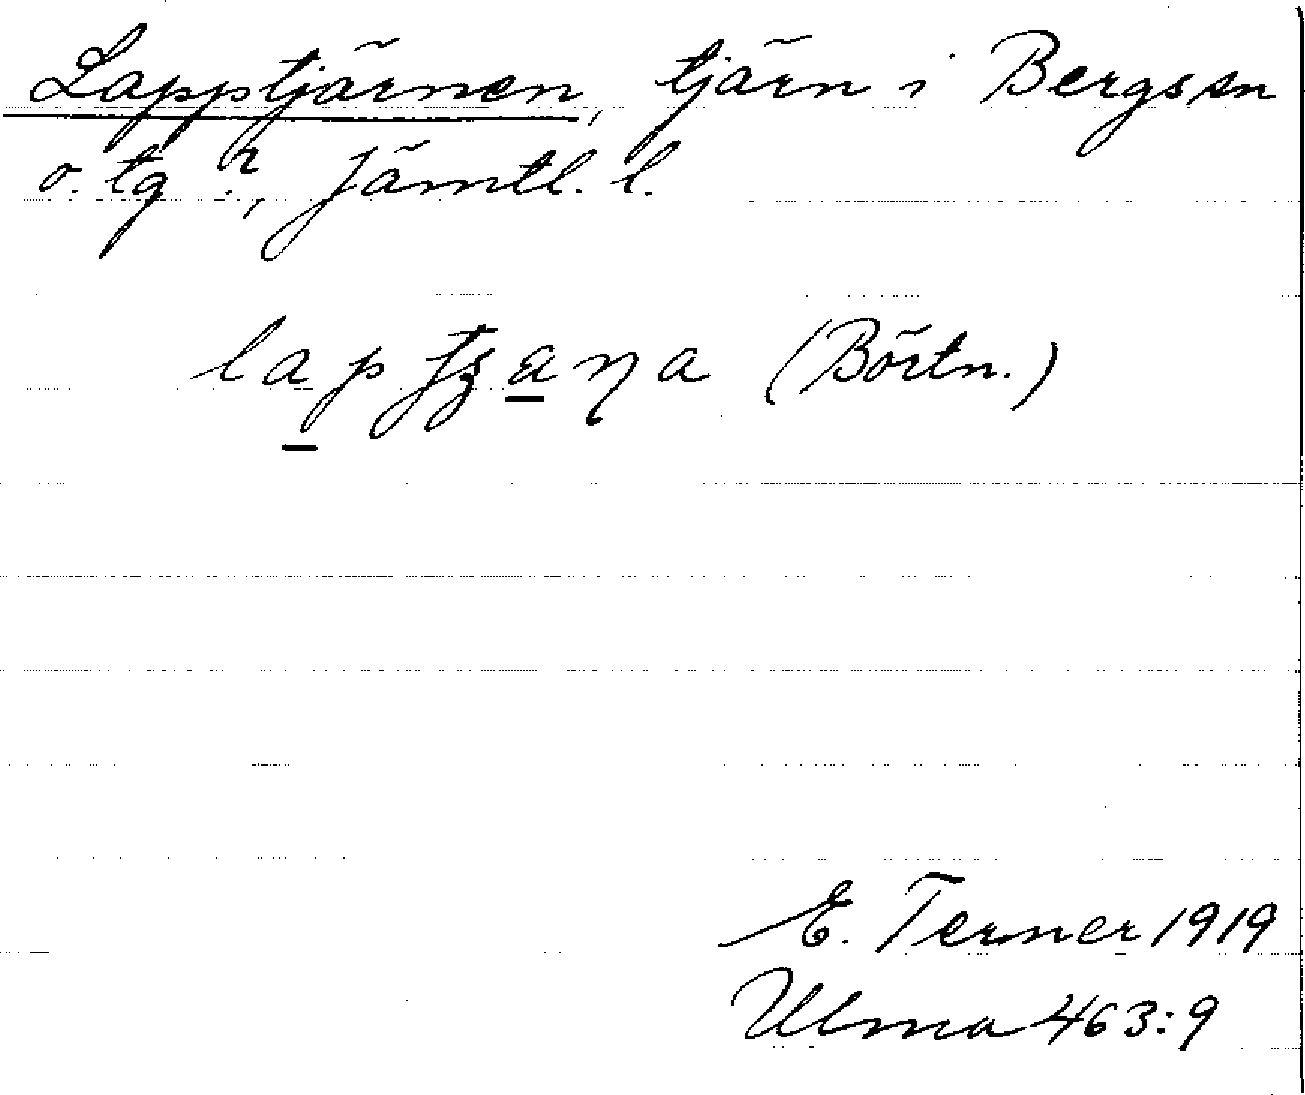 Lapptjärnen, tjärn i Bergs sn
o. tg ?, Jämtl. l.
(Börtn.)
E. Terner 1919
Ulma 463:9